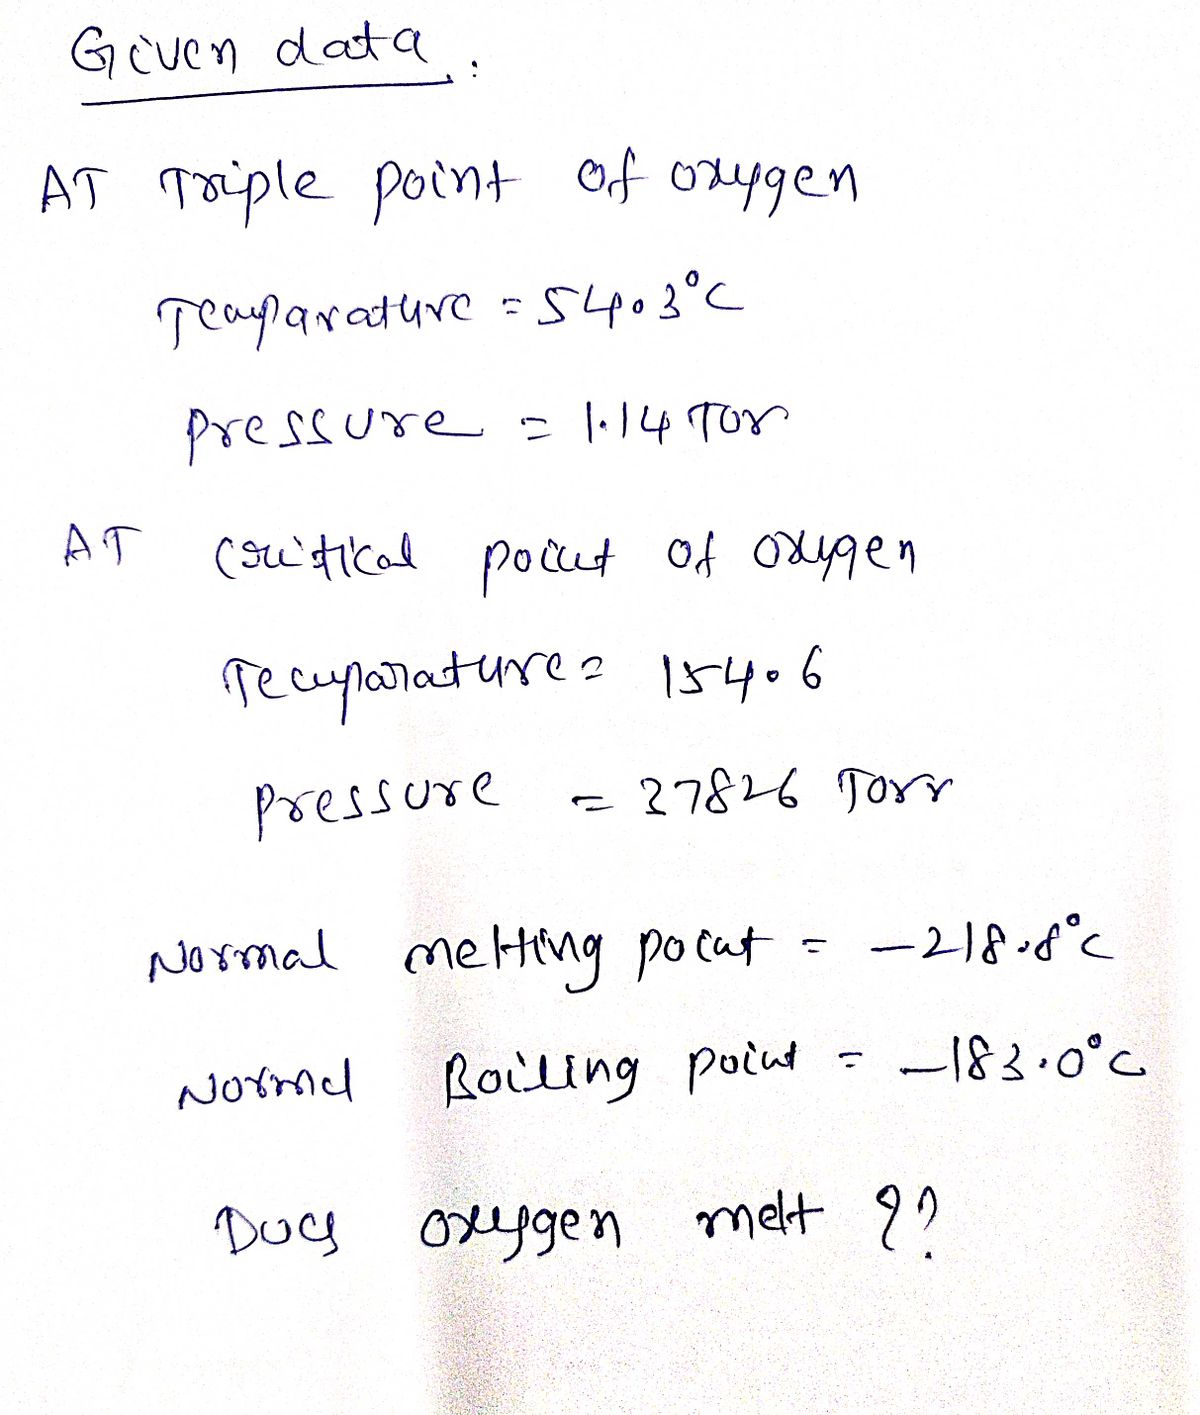 Given data :
AT Triple point of oxygen
Temparature = 54.3°C
pressure = 1.14 Tor
AT critical point of oxygen
Temparature = 154.6
pressure = 37826 Torr
Normal melting point = -218.8°C
Normal Boiling point = -183.0°C
Does oxygen melt ??